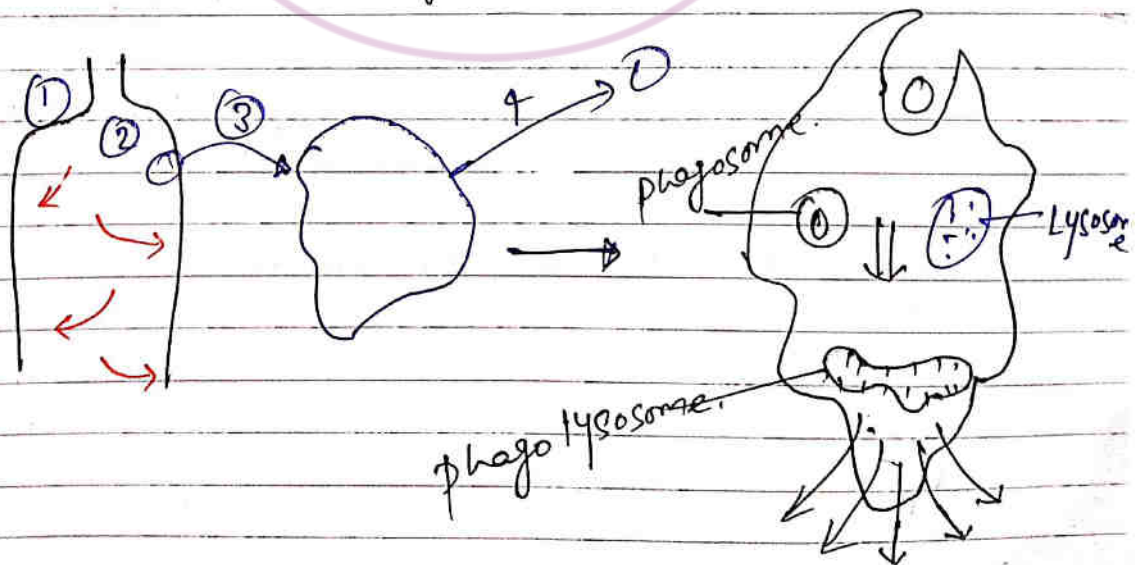 ①
②
③
4
phagosome.
Lysosom
e
phagolysosome.